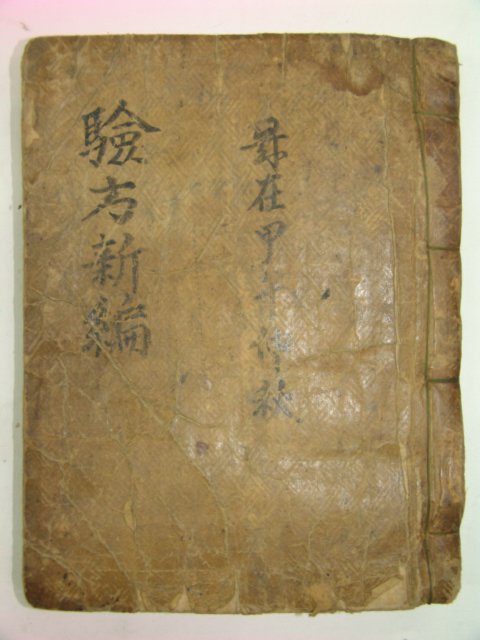 歲在甲午仲秋
驗方新編